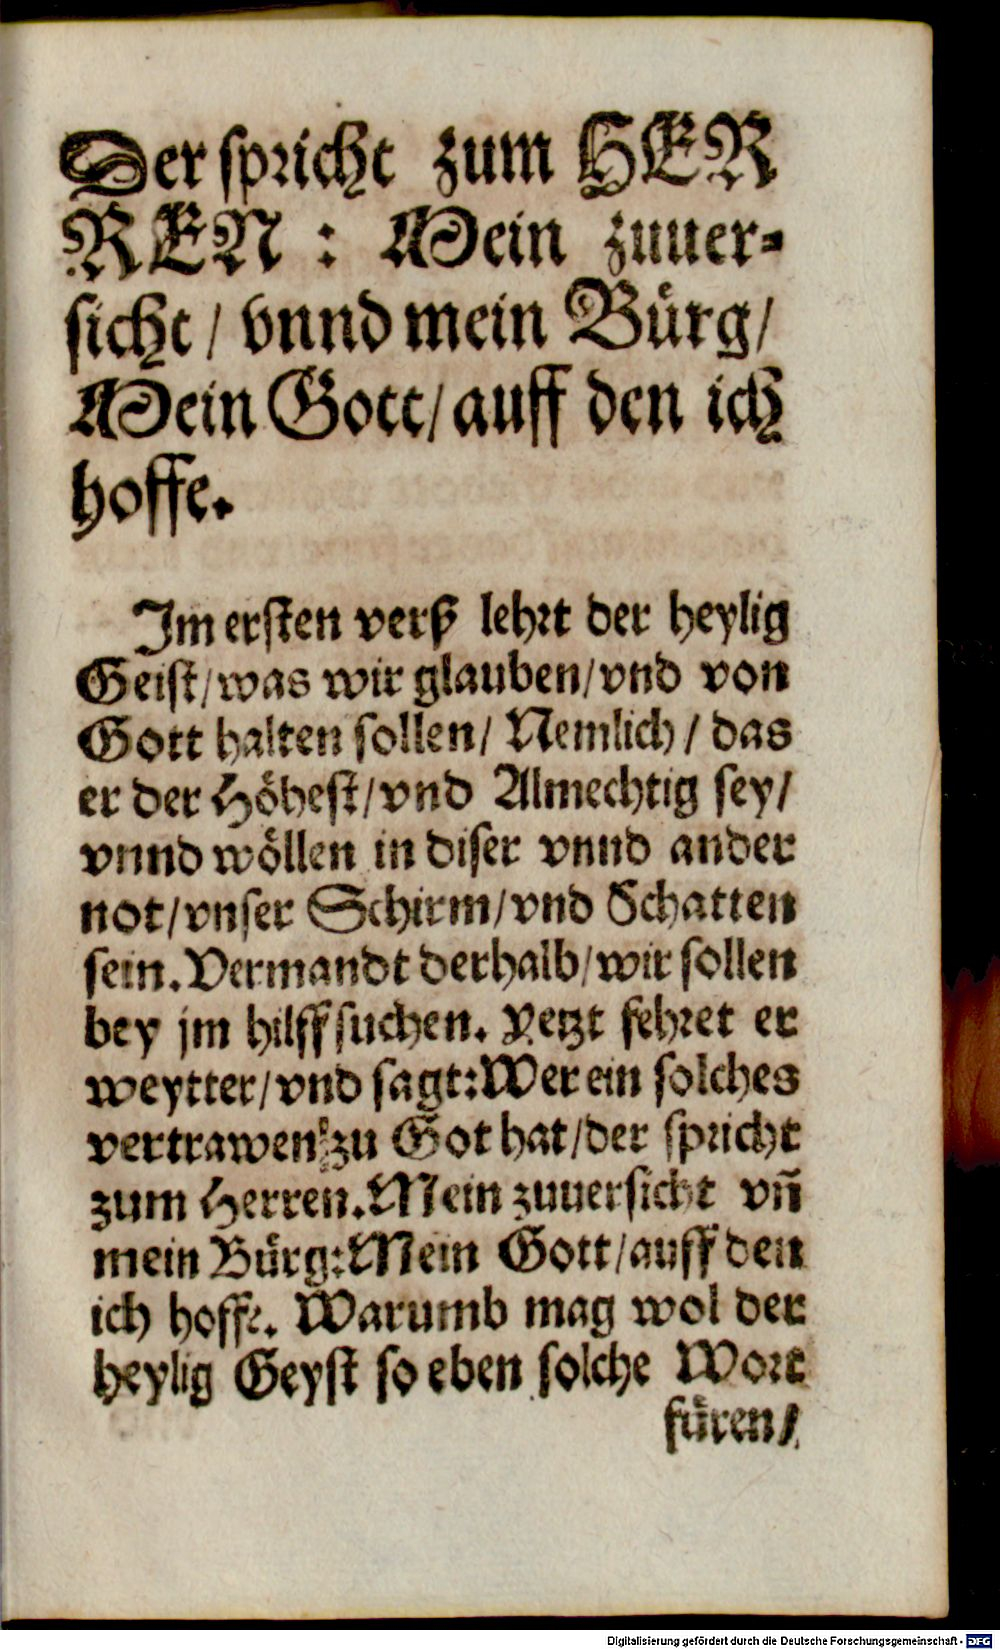 Der spricht zum HER
REN : Mein zuuer-
sicht / vnnd mein Bürg /
Mein Gott / auff den ich
hoffe.
Im ersten verß lehrt der heylig
Geist / was wir glauben / vnd von
Gott halten sollen / Nemlich / das
er der Höhest / vnd Almechtig sey /
vnnd wöllen in diser vnnd ander
not / vnser Schirm / vnd Schatten
sein. Vermandt derhalb / wir sollen
bey jm hilff suchen. Yetzt fehret er
weytter / vnd sagt: Wer ein solches
vertrawen zu Got hat / der spricht
zum Herren. Mein zuuersicht vn̄
mein Bürg: Mein Gott / auff den
ich hoffe. Warumb mag wol der
heylig Geyst so eben solche Wort
füren /
Digitalisierung gefördert durch die Deutsche Forschungsgemeinschaft - DFG